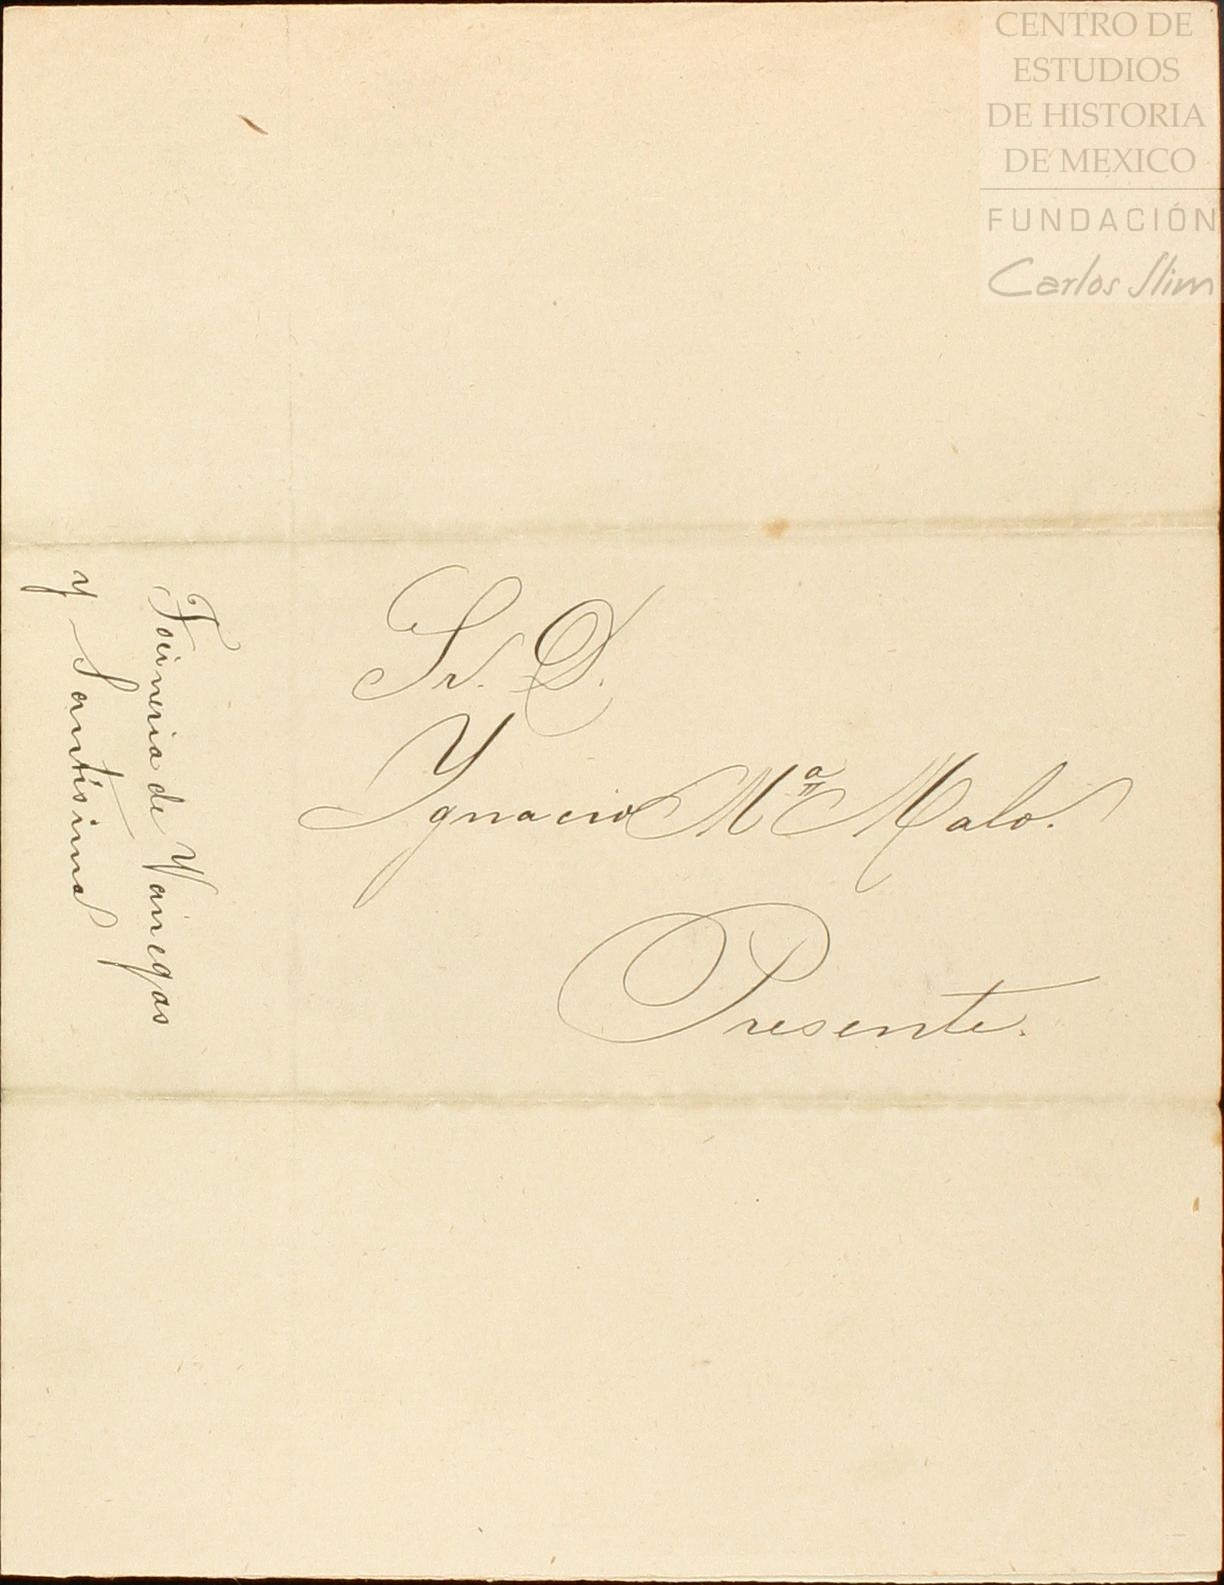 CENTRO DE
ESTUDIOS
DE HISTORIA
DE MEXICO
FUNDACIÓN
Carlos Slim
Sr. D.
Ygnacio Mª Malo.
Presente.
Tocineria de Vanegas
y Santisima